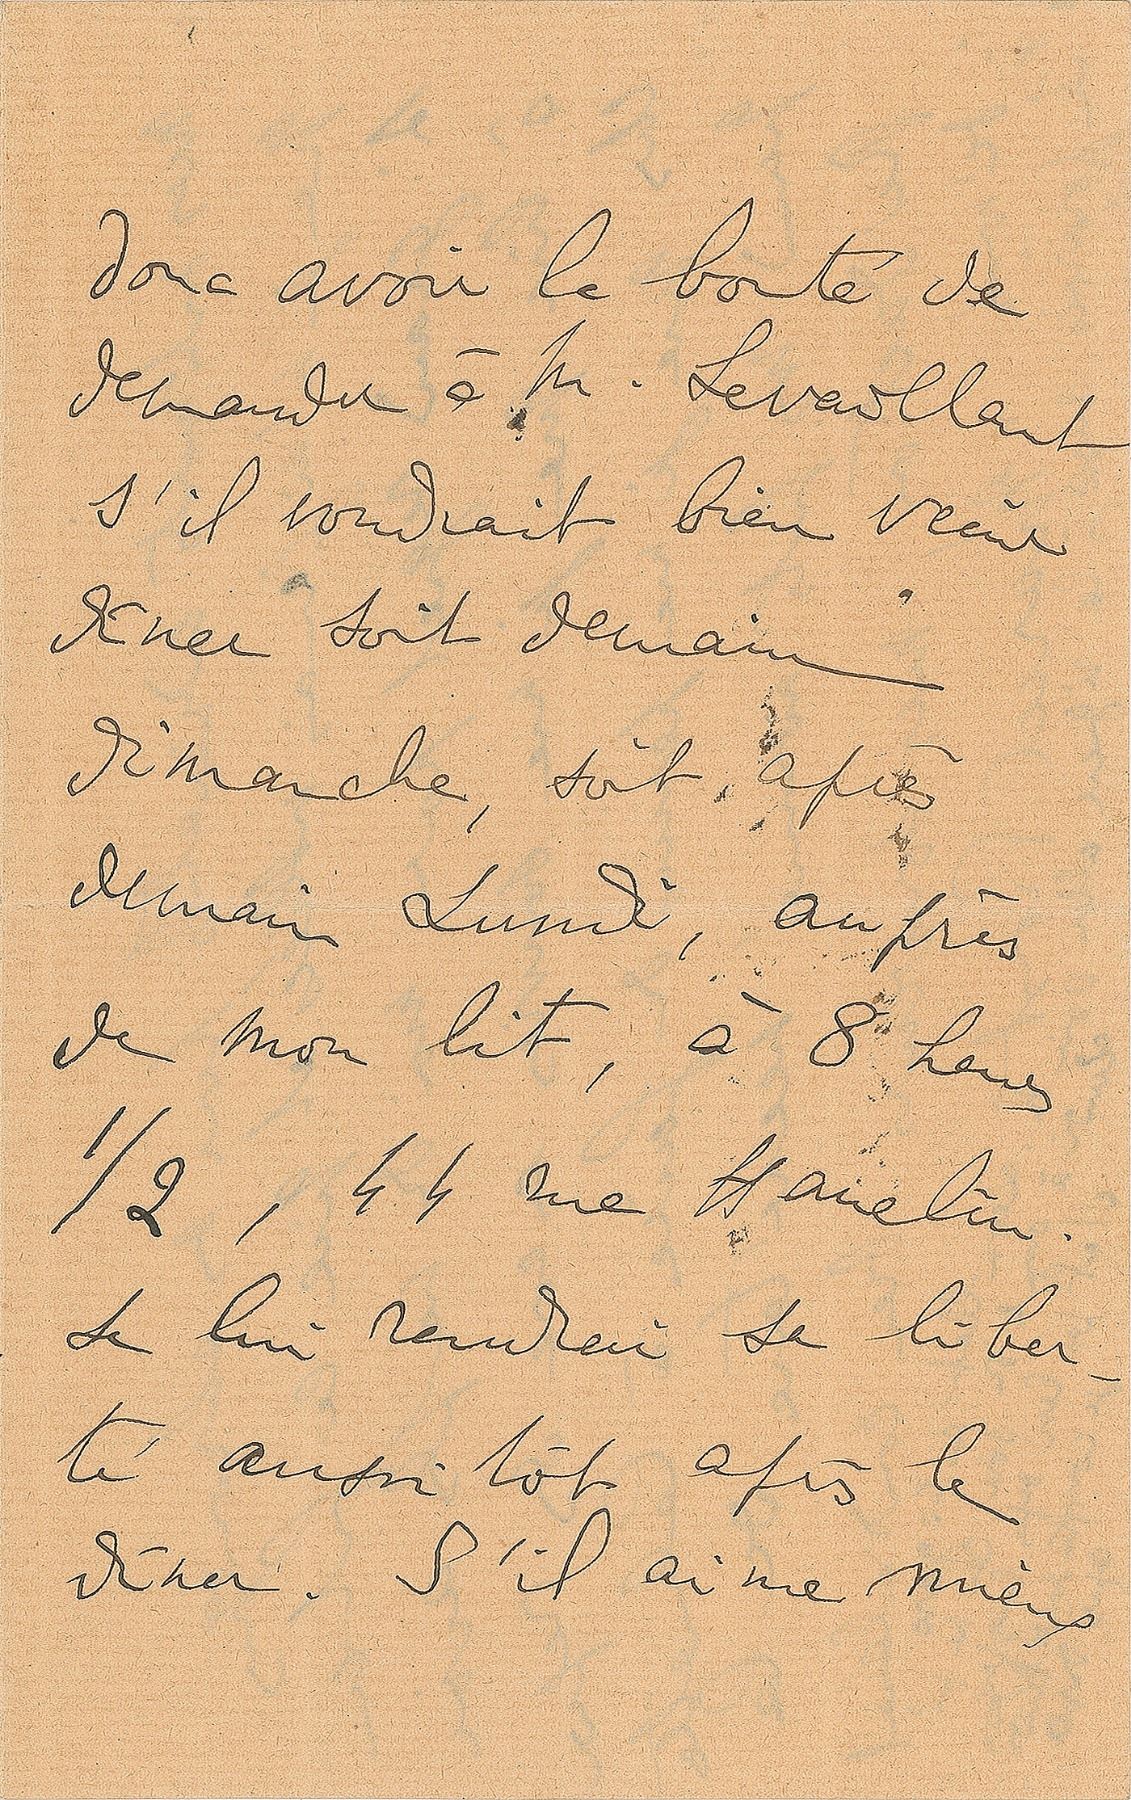 donc avoir la bonté de
demander à M. Levaillant
s'il voudrait bien venir
dîner soit demain
dimanche, soit après
demain Lundi, auprès
de mon lit, à 8 heures
1/2, 44 rue Hamelin.
Je lui rendrai sa liber-
té aussi tôt après le
dîner. S'il aime mieux